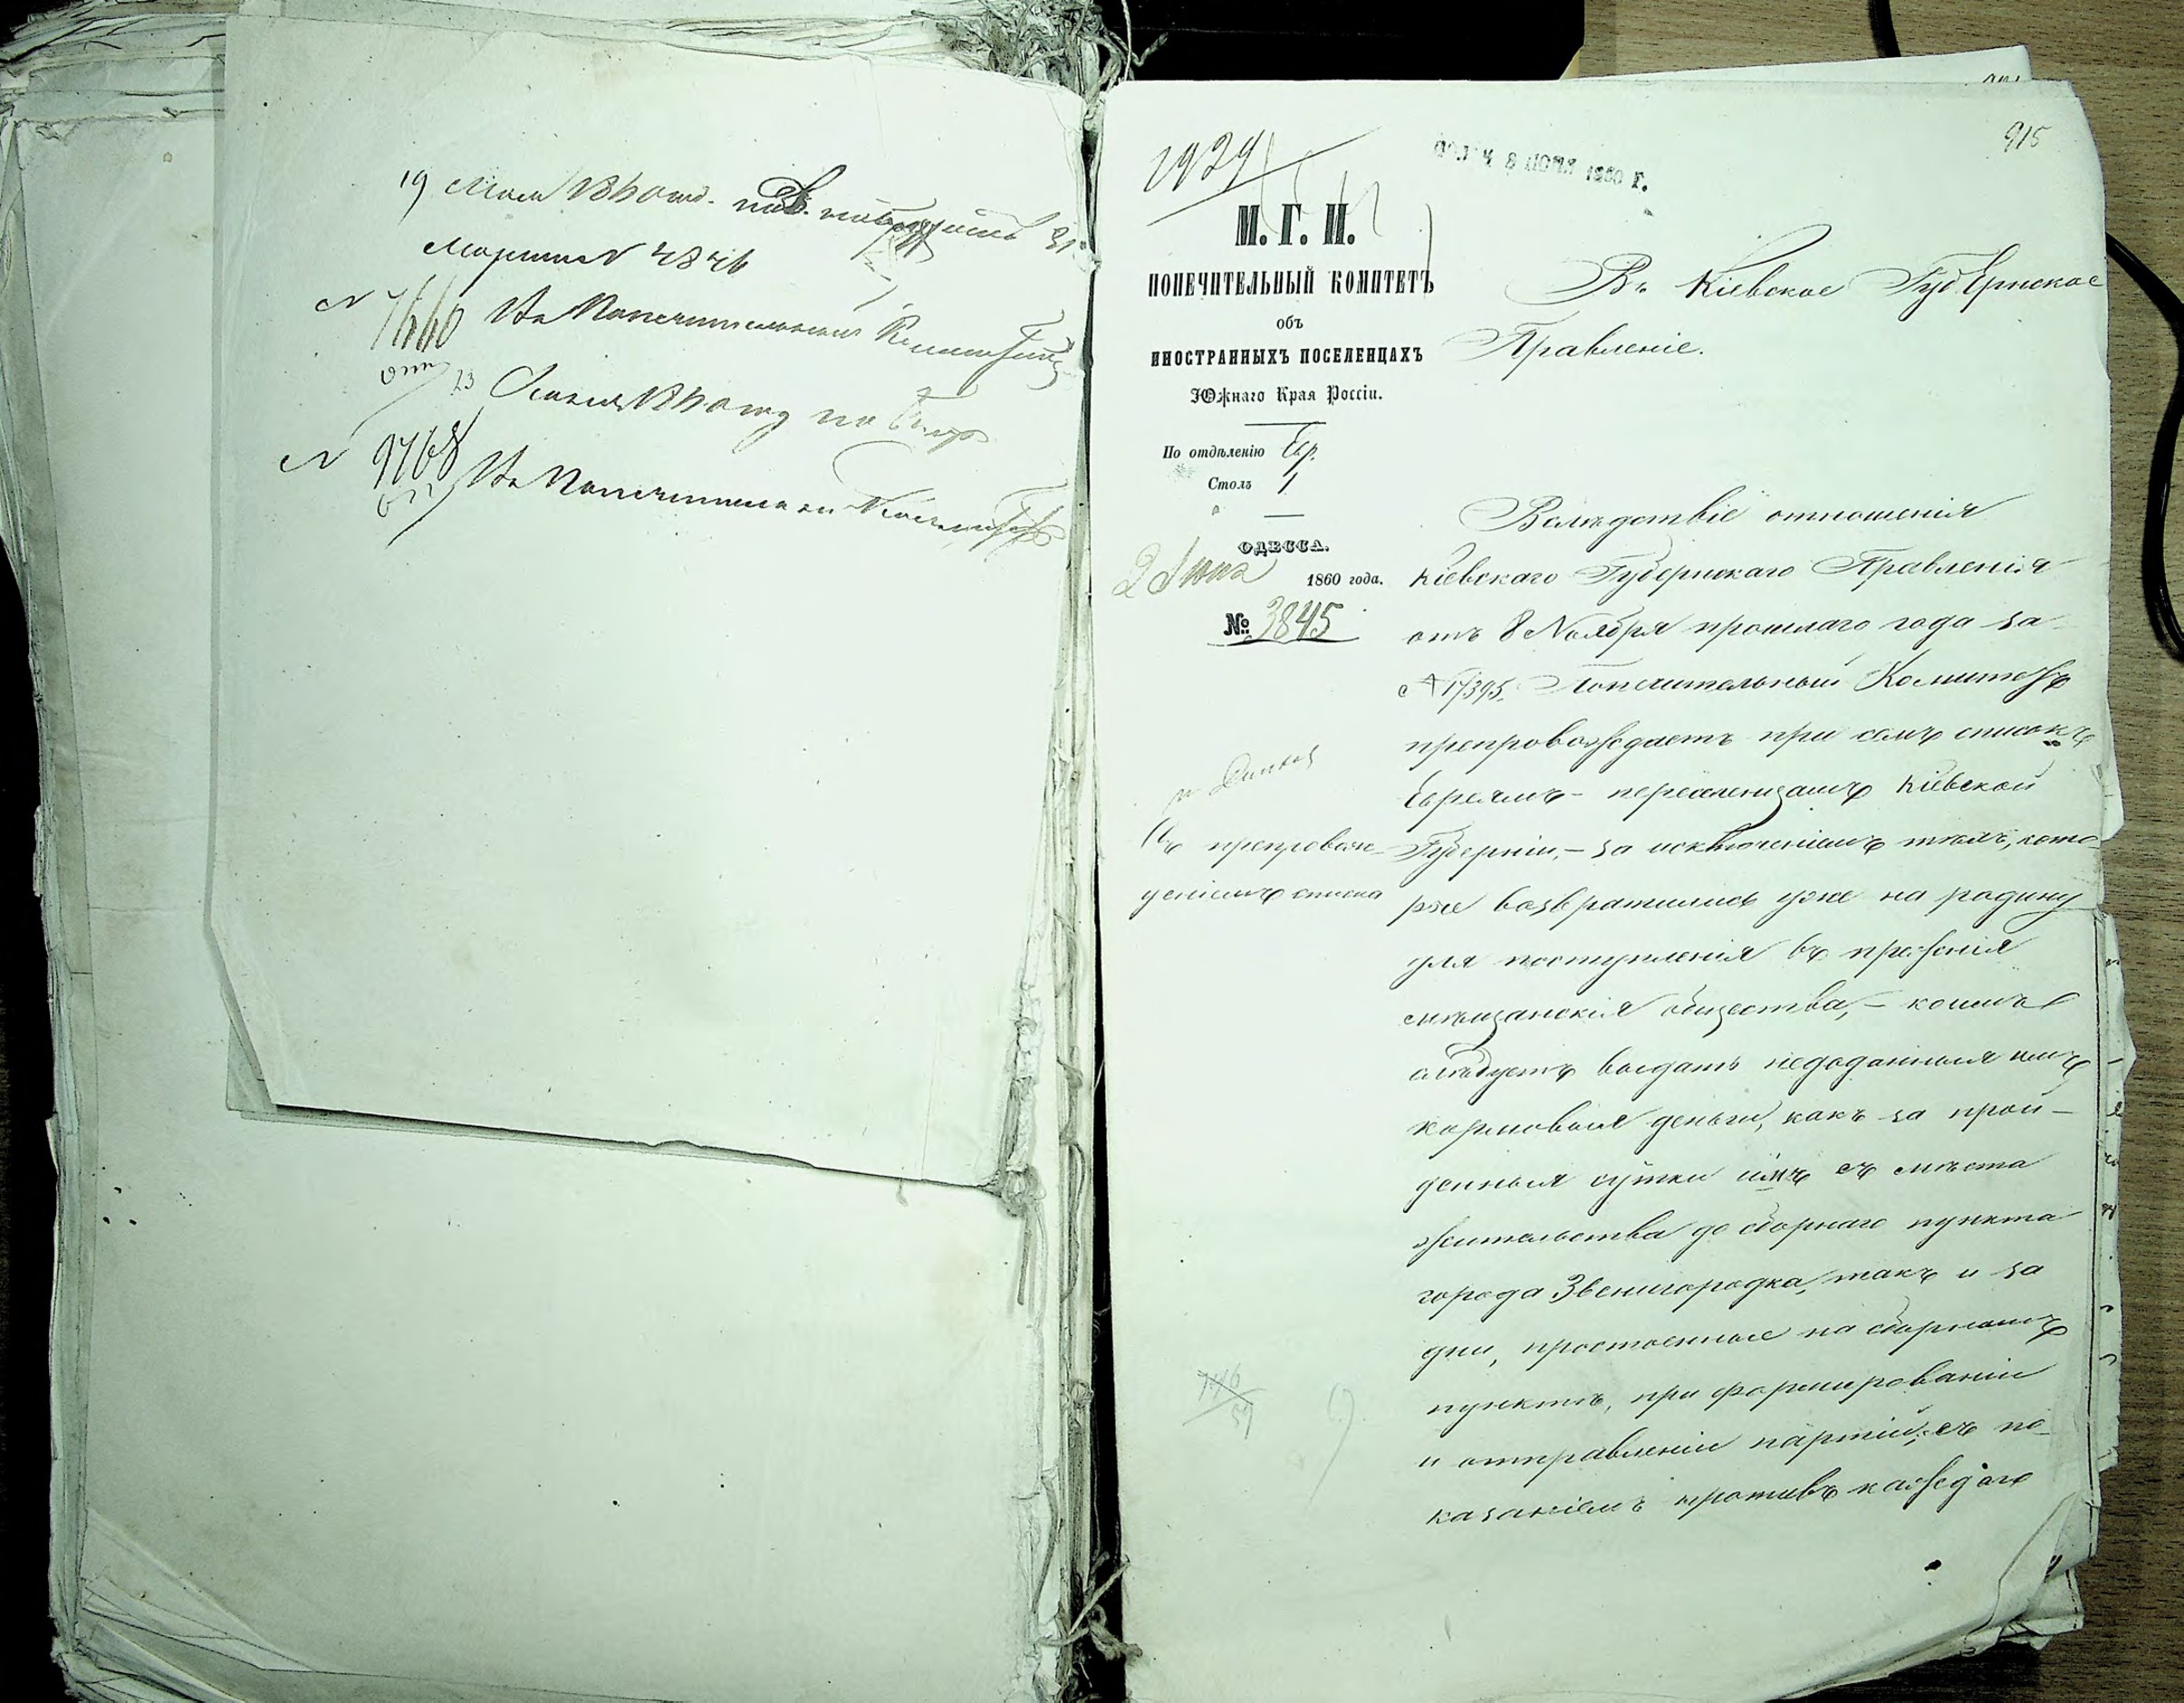 19 Мая
Марта № 4846
№ 7660 Въ Попечительный Комитетъ
23
№ 9768 Въ Попечительн. Комитетъ
915
1929
ПОЛУЧ. 8 ІЮНЯ 1860 Г.
М. Г. И.
ПОПЕЧИТЕЛЬНЫЙ КОМИТЕТЪ
объ
ИНОСТРАННЫХЪ ПОСЕЛЕНЦАХЪ
Южнаго Края Россіи.
По отдѣленію Евр.
Столъ 1
ОДЕССА.
2 Іюня 1860 года.
№ 3845
Съ препровож-
деніемъ списка
Въ Кіевское Губернское
Правленіе.
Вслѣдствіе отношенія
Кіевскаго Губернскаго Правленія
отъ 8 Ноября прошлаго года за
№ 17395. Попечительный Комитетъ
препровождаетъ при семъ списокъ
Евреямъ - переселенцамъ Кіевской
Губерніи, - за исключеніемъ тѣхъ, кото-
рые возвратились уже на родину
для поступленія въ прежнія
мѣщанскія общества, - коимъ
слѣдуетъ выдать недоданныя имъ
кормовыя деньги, какъ за прой-
денныя сутки имъ съ мѣста
жительства до сборнаго пункта
города Звенигородка, такъ и за
дни, простоенные на сборномъ
пунктѣ, при формированіи
и отправленіи партій; съ по-
казаніемъ противъ каждаго